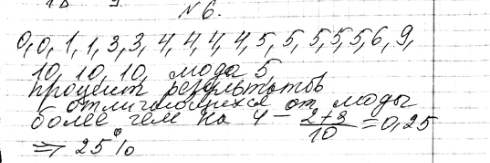 №6.
0,0,1,1,3,3,4,4,4,4,5,5,5,5,5,6,9,
10,10,10, мода 5,
процент результатов
отличающихся от моды
более чем на 4 – 2+3/10 = 0,25
⇒ 25%